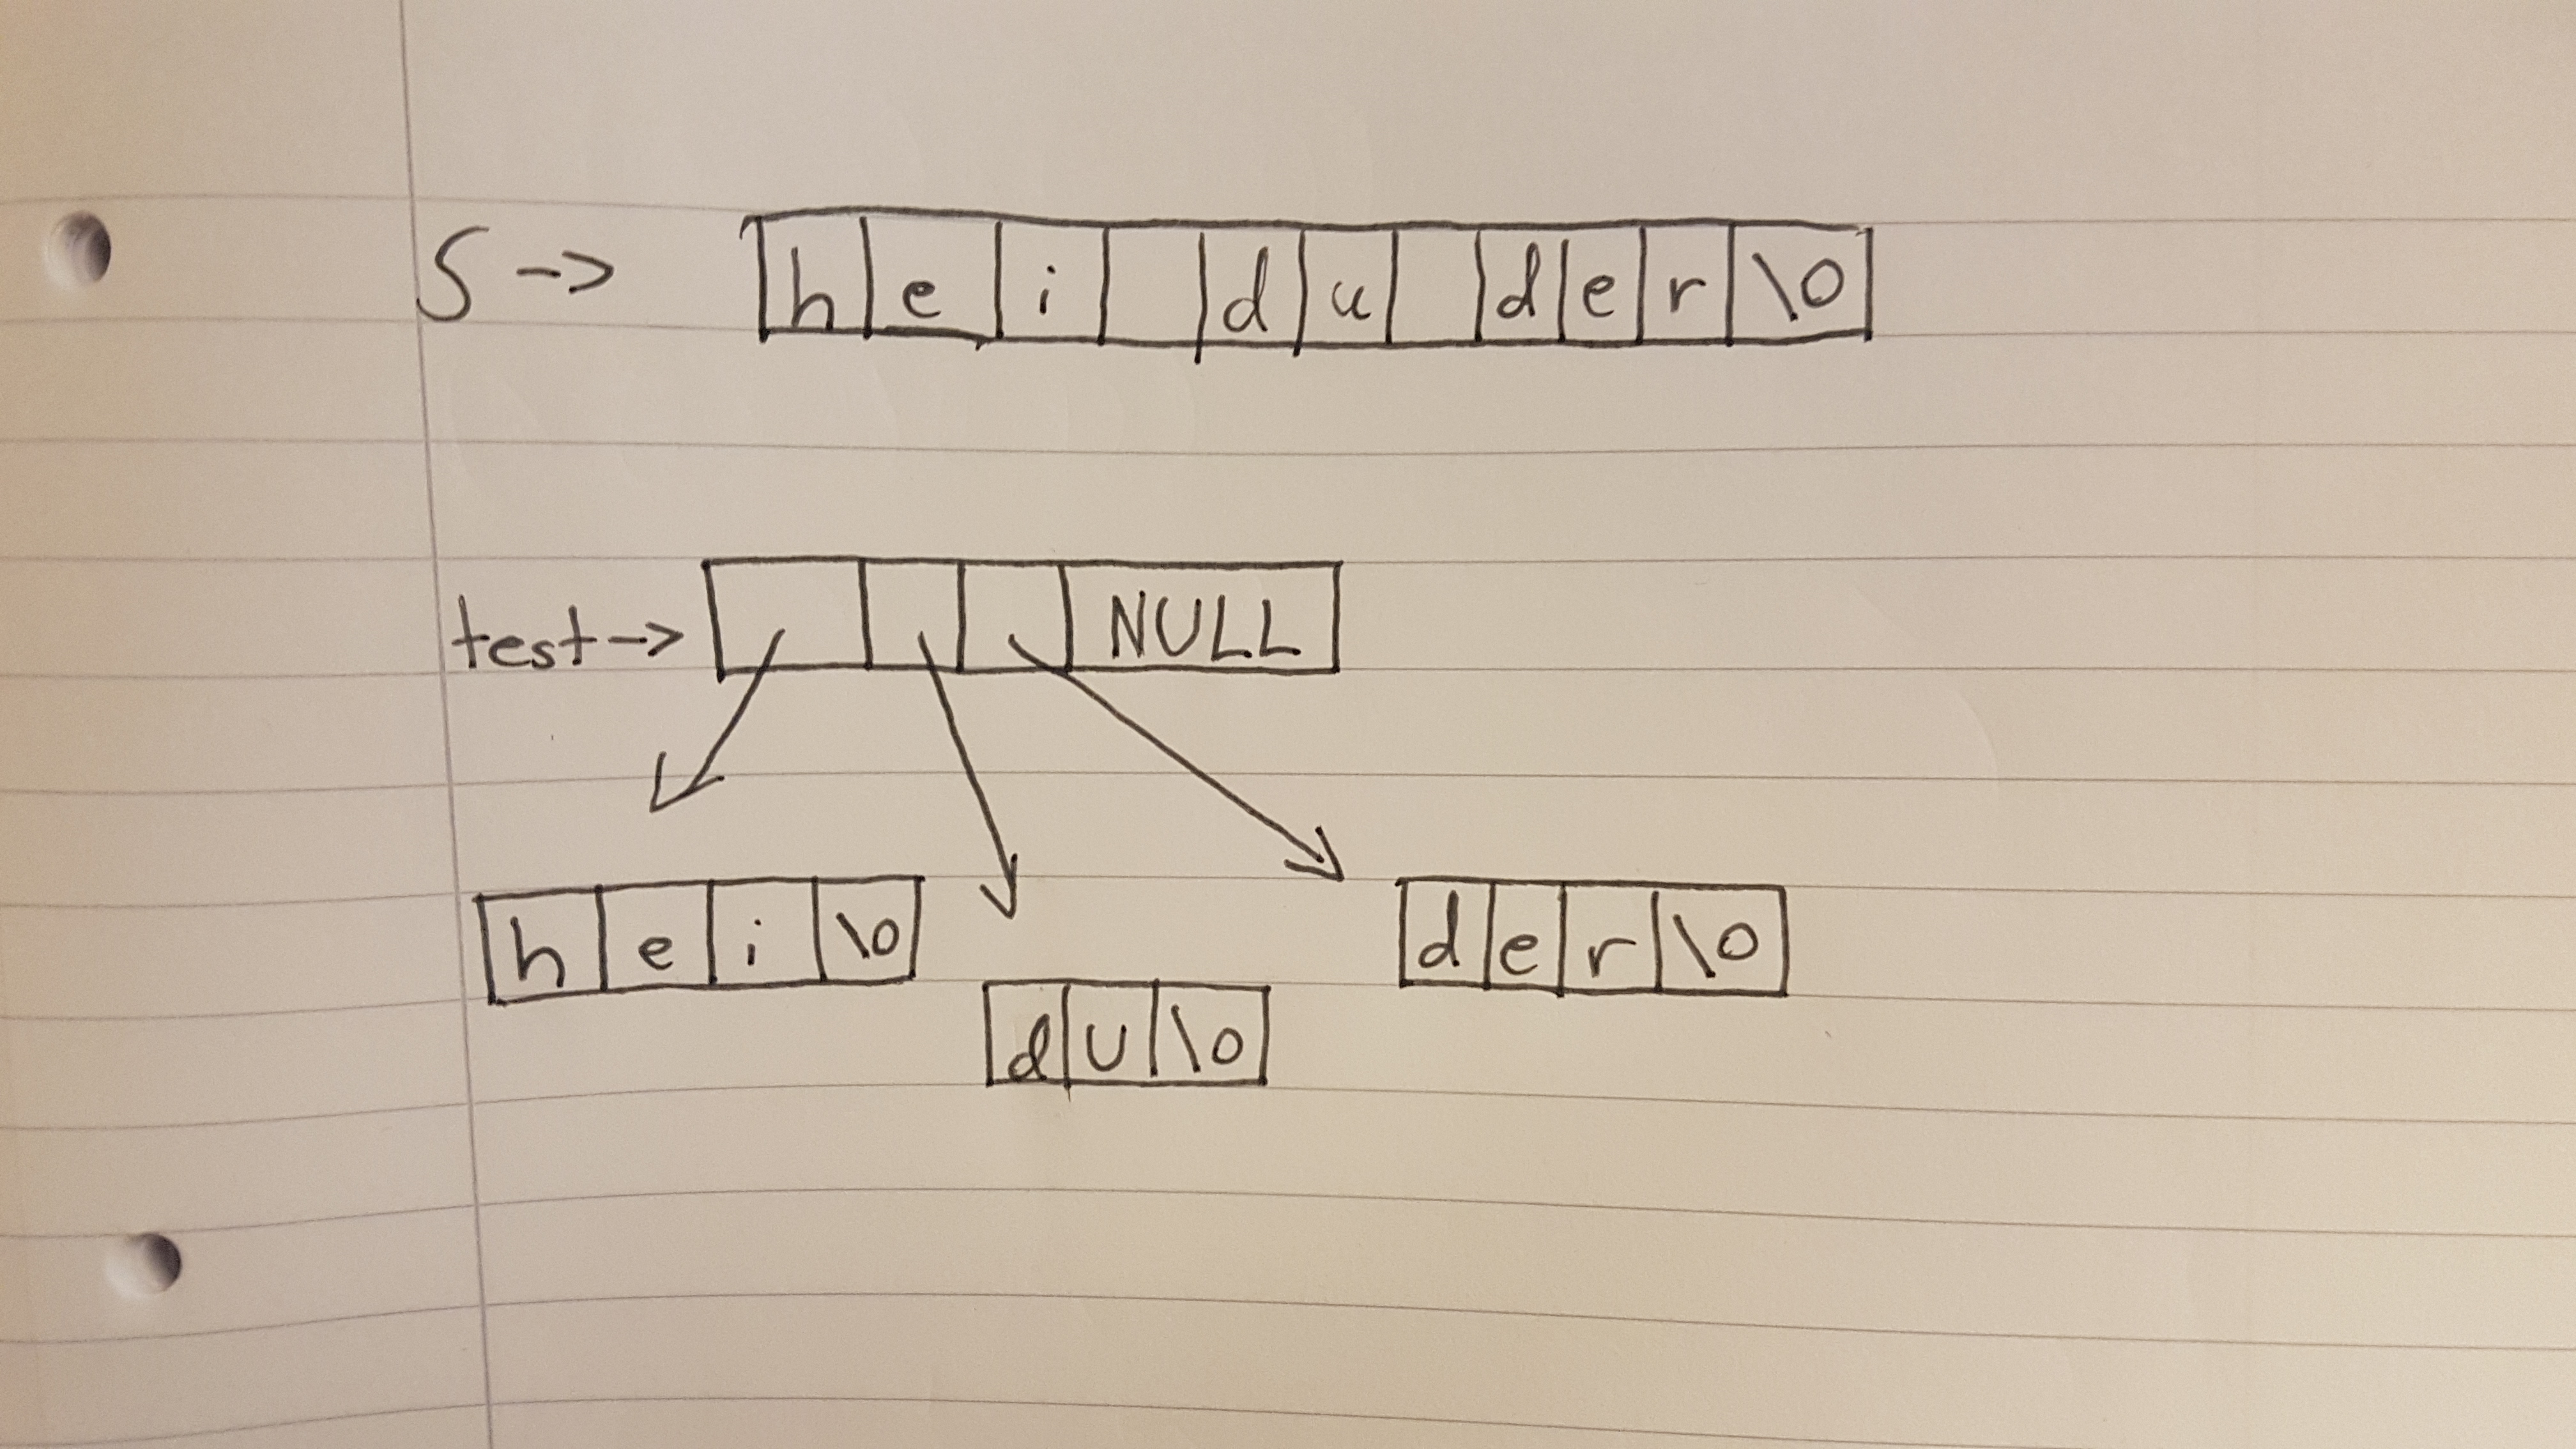 S -> h e i d u d e r \0
test -> NULL
h e i \0 d e r \0
d u \0